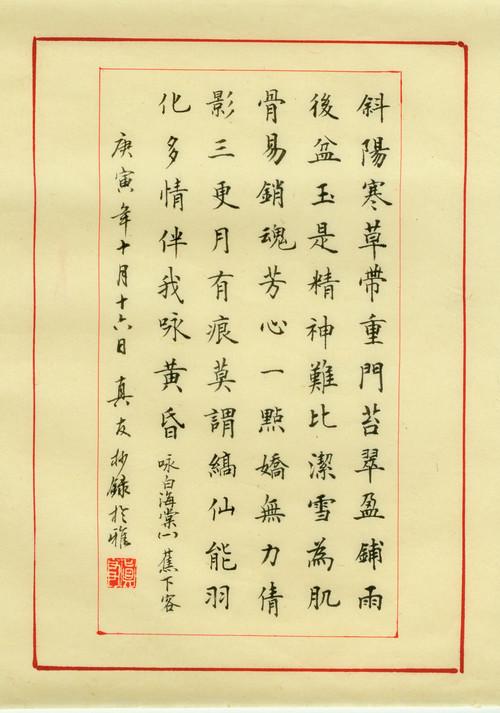 斜陽寒草帶重門苔翠盈鋪雨
後盆玉是精神難比潔雪為肌
骨易銷魂芳心一點嬌無力倩
影三更月有痕莫謂縞仙能羽
化多情伴我咏黃昏 咏白海棠(一) 蕉下客
庚寅年十月十六日 真友抄錄於雅